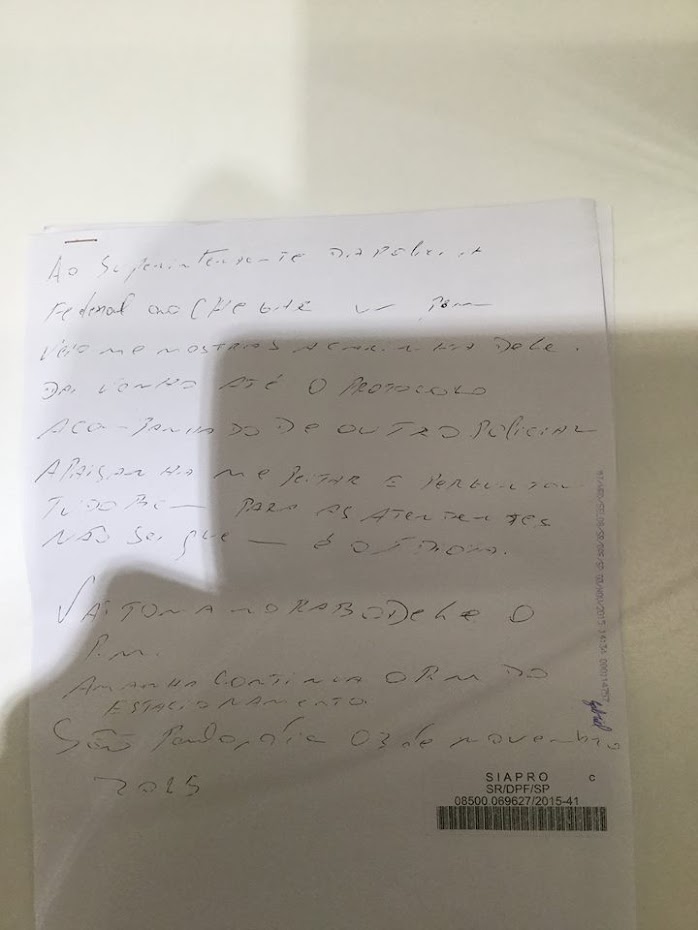 Ao Superintendente da Policia
Federal ao chegar um P.M.
Veio me mostrar a carinha dele.
Daí venho até o Protocolo
acompanhado de outro policial
me peitar e perguntou
tudo bem para as atendentes
Não sei quem é o idiota.
Vai toma no rabo dele o
P.M.
Amanhã continua o P.M. do
estacionamento
São Paulo, dia 03 de novembro
2015
SIAPRO C
SR/DPF/SP
08500 069627/2015-41